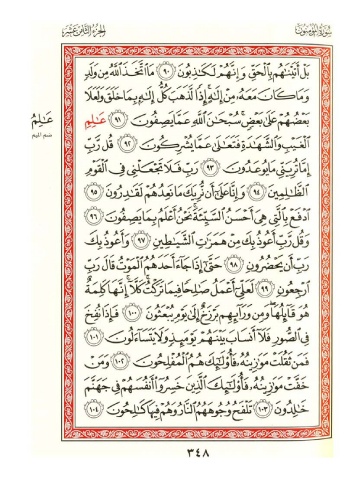 سُورَةُ المُؤْمِنُونَ
الجُزْءُ الثَّامِنَ عَشَرَ
بَلْ أَتَيْنَٰهُم بِٱلْحَقِّ وَإِنَّهُمْ لَكَٰذِبُونَ ٩٠ مَا ٱتَّخَذَ ٱللَّهُ مِن وَلَدٍ
وَمَا كَانَ مَعَهُۥ مِنْ إِلَٰهٍ إِذًا لَّذَهَبَ كُلُّ إِلَٰهٍۭ بِمَا خَلَقَ وَلَعَلَا
بَعْضُهُمْ عَلَىٰ بَعْضٍ سُبْحَٰنَ ٱللَّهِ عَمَّا يَصِفُونَ ٩١ عَٰلِمُ
ٱلْغَيْبِ وَٱلشَّهَٰدَةِ فَتَعَٰلَىٰ عَمَّا يُشْرِكُونَ ٩٢ قُل رَّبِّ
إِمَّا تُرِيَنِّي مَا يُوعَدُونَ ٩٣ رَبِّ فَلَا تَجْعَلْنِي فِي ٱلْقَوْمِ
ٱلظَّٰلِمِينَ ٩٤ وَإِنَّا عَلَىٰٓ أَن نُّرِيَكَ مَا نَعِدُهُمْ لَقَٰدِرُونَ ٩٥
ٱدْفَعْ بِٱلَّتِي هِيَ أَحْسَنُ ٱلسَّيِّئَةَ نَحْنُ أَعْلَمُ بِمَا يَصِفُونَ ٩٦
وَقُل رَّبِّ أَعُوذُ بِكَ مِنْ هَمَزَٰتِ ٱلشَّيَٰطِينِ ٩٧ وَأَعُوذُ بِكَ
رَبِّ أَن يَحْضُرُونِ ٩٨ حَتَّىٰٓ إِذَا جَآءَ أَحَدَهُمُ ٱلْمَوْتُ قَالَ رَبِّ
ٱرْجِعُونِ ٩٩ لَعَلِّيٓ أَعْمَلُ صَٰلِحًا فِيمَا تَرَكْتُ كَلَّآ إِنَّهَا كَلِمَةٌ
هُوَ قَآئِلُهَا وَمِن وَرَآئِهِم بَرْزَخٌ إِلَىٰ يَوْمِ يُبْعَثُونَ ١٠٠ فَإِذَا نُفِخَ
فِي ٱلصُّورِ فَلَآ أَنسَابَ بَيْنَهُمْ يَوْمَئِذٍ وَلَا يَتَسَآءَلُونَ ١٠١
فَمَن ثَقُلَتْ مَوَٰزِينُهُۥ فَأُوْلَٰٓئِكَ هُمُ ٱلْمُفْلِحُونَ ١٠٢ وَمَنْ
خَفَّتْ مَوَٰزِينُهُۥ فَأُوْلَٰٓئِكَ ٱلَّذِينَ خَسِرُوٓاْ أَنفُسَهُمْ فِي جَهَنَّمَ
خَٰلِدُونَ ١٠٣ تَلْفَحُ وُجُوهَهُمُ ٱلنَّارُ وَهُمْ فِيهَا كَٰلِحُونَ ١٠٤
عَٰلِمُ
ضم الميم
٣٤٨